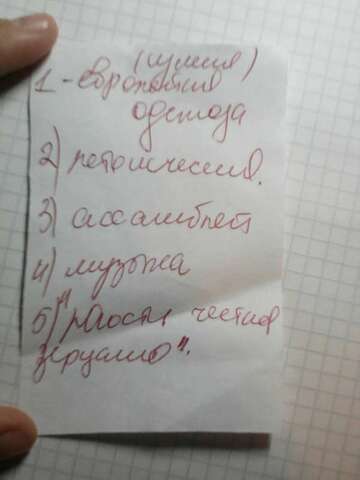 1 - европейская
одежда
2) летоисчесления.
3) ассамблеи
4) музыка
5) "Юности честное
зерцало".